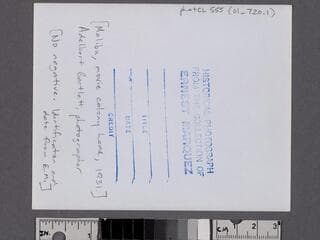 photCL 555 (01_720.1)
HISTORICAL PHOTOGRAPH
FROM THE COLLECTION OF
ERNEST MARQUEZ
TITLE
DATE
CREDIT
[Malibu, movie colony home, 1931]
Adelbert Bartlett, photographer
[No negative. Identification and
date from E.M.]
IN.
1
CM
1
2
3